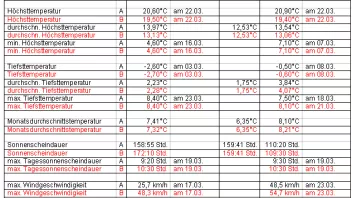 Höchsttemperatur A 20,60°C am 22.03. 20,90°C am 22.03.
Höchsttemperatur B 19,50°C am 22.03. 19,40°C am 22.03.
durchschn. Höchsttemperatur A 13,97°C 12,53°C 13,54°C
durchschn. Höchsttemperatur B 13,13°C 12,53°C 13,06°C
min. Höchsttemperatur A 4,60°C am 16.03. 7,10°C am 07.03.
min. Höchsttemperatur B 4,60°C am 16.03. 7,10°C am 07.03.
Tiefsttemperatur A -2,60°C am 03.03. -0,50°C am 08.03.
Tiefsttemperatur B -2,70°C am 03.03. -0,60°C am 08.03.
durchschn. Tiefsttemperatur A 2,23°C 1,75°C 3,84°C
durchschn. Tiefsttemperatur B 2,28°C 1,75°C 4,07°C
max. Tiefsttemperatur A 8,40°C am 23.03. 7,50°C am 18.03.
max. Tiefsttemperatur B 8,40°C am 23.03. 8,10°C am 21.03.
Monatsdurchschnittstemperatur A 7,41°C 6,35°C 8,10°C
Monatsdurchschnittstemperatur B 7,32°C 6,35°C 8,21°C
Sonnenscheindauer A 158:55 Std. 159:41 Std. 110:20 Std.
Sonnenscheindauer B 172:10 Std. 159:41 Std. 109:30 Std.
max. Tagessonnenscheindauer A 9:20 Std. am 19.03. 9:30 Std. am 19.03.
max. Tagessonnenscheindauer B 10:30 Std. am 19.03. 10:30 Std. am 19.03.
max. Windgeschwindigkeit A 25,7 km/h am 17.03. 48,5 km/h am 23.03.
max. Windgeschwindigkeit B 48,3 km/h am 17.03. 54,7 km/h am 23.03.